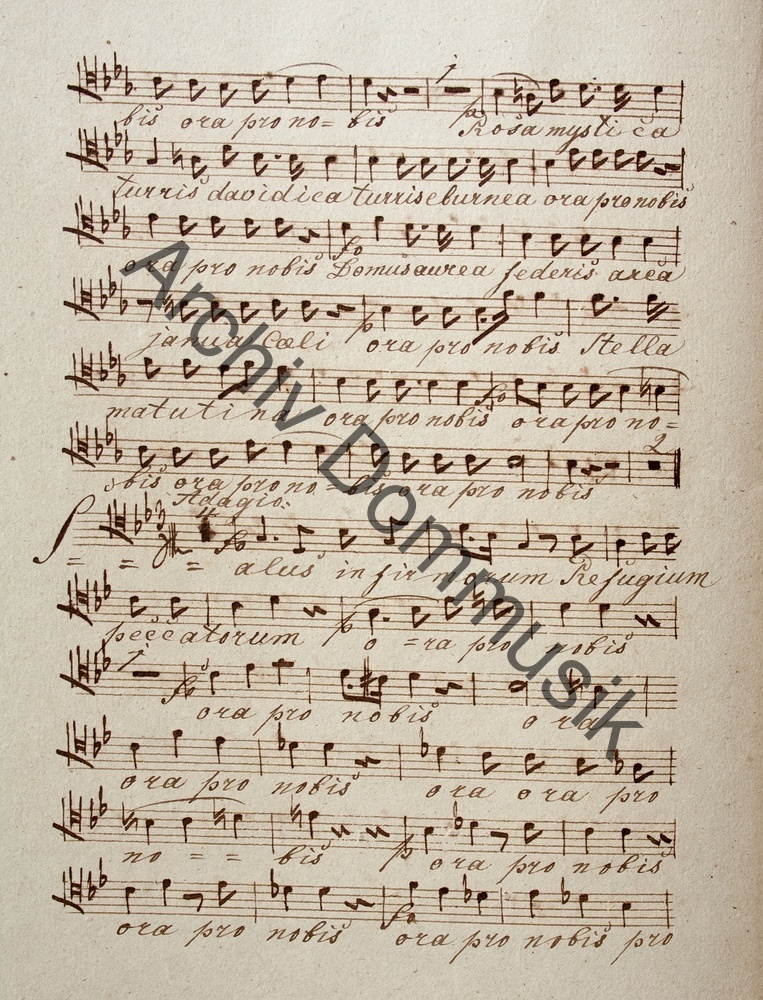 bis ora pro no= bis 1 p Rosa mysti ca
turris davidica turris eburnea ora pro nobis
ora pro nobis fo Domus aurea federis arca
janua Cœli p ora pro nobis Stella
matutina ora pro nobis fo ora pro no=
2
obis ora pro no = bis ora pro nobis
Adagio.
S = = = fo alus infirmorum Refugium
peccatorum p o =ra pro nobis
1 fo ora pro nobis ora
ora pro nobis ora ora pro
no = = bis p ora pro nobis
ora pro nobis fo ora pro nobis pro
Archiv Dommusik